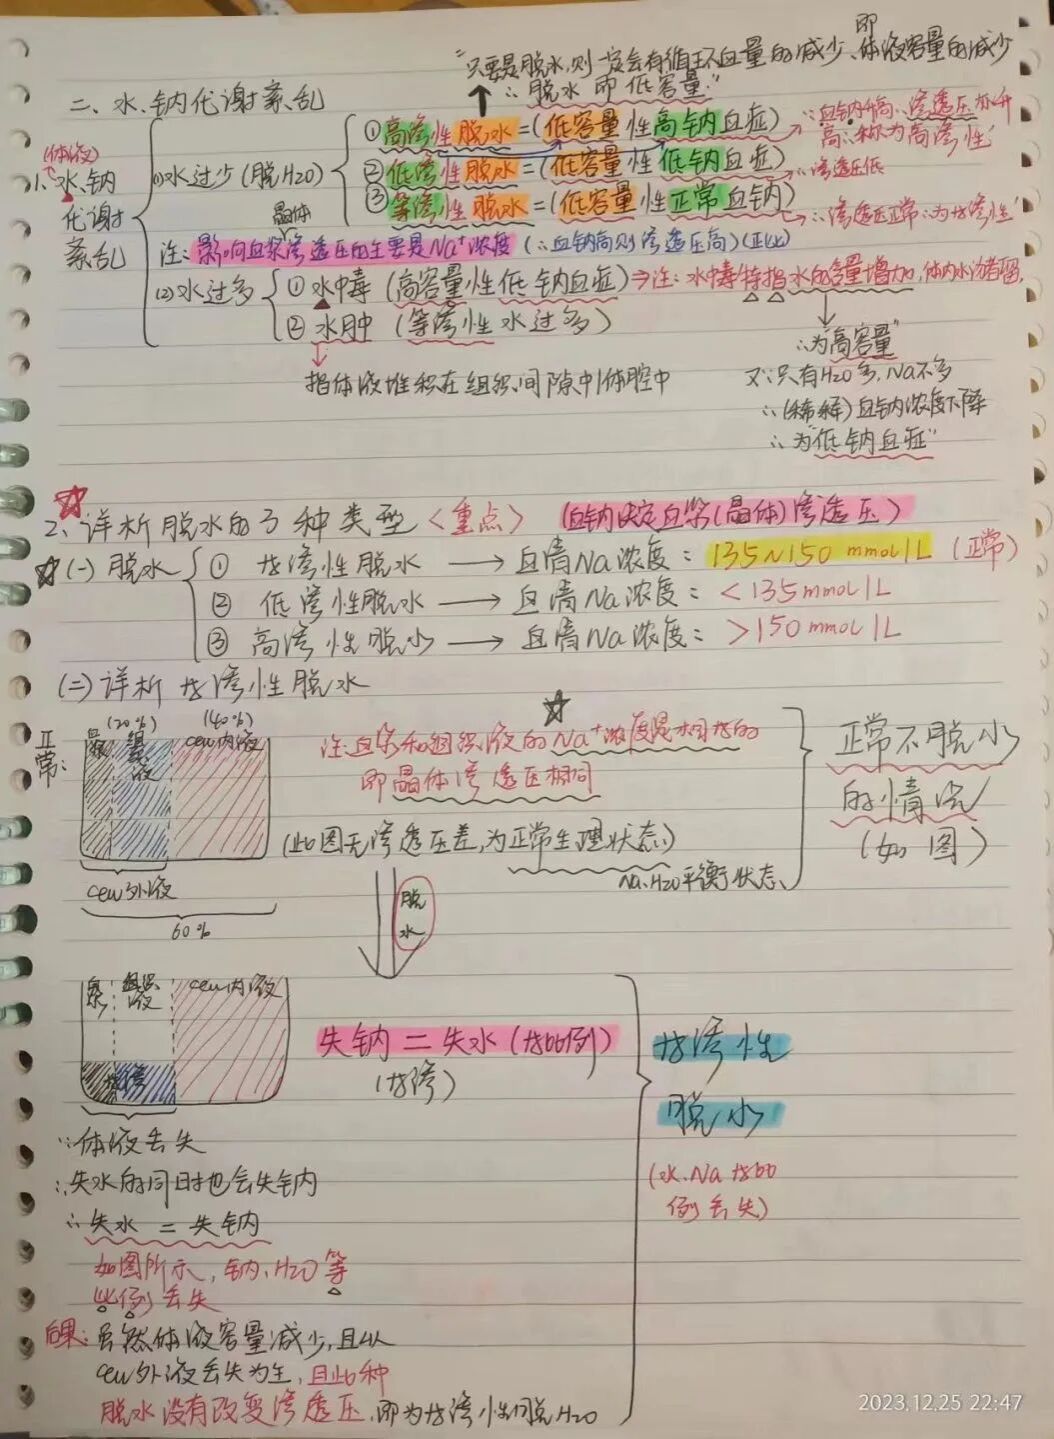 "只要是脱水,则一定会有循环血量的减少、即体液容量的减少
∴ 脱水 即 低容量"
二、水、钠代谢紊乱
1、水、钠代谢紊乱
(体液)
(1)水过少(脱H2O)
①高渗性脱水=(低容量性高钠血症)
∵血钠升高∴渗透压亦升高∴称为高渗性
②低渗性脱水=(低容量性低钠血症)
∵渗透压低
③等渗性脱水=(低容量性正常血钠)
∴渗透压正常∴为等渗性
晶体
注:影响血浆渗透压的主要是Na+浓度(∴血钠高则渗透压高)(正比)
(2)水过多
①水中毒(高容量性低钠血症)⇒注:水中毒特指水的含量增加,体内水潴留,
②水肿(等渗性水过多)
∴为"高容量"
指体液堆积在组织间隙中/体腔中
又∵只有H2O多,Na不多
∴(稀释)血钠浓度下降
∴为"低钠血症"
2、详析脱水的3种类型<重点> (血钠决定血浆(晶体)渗透压)
(一)脱水
① 等渗性脱水 → 血清Na浓度:135~150 mmol/L(正常)
② 低渗性脱水 → 血清Na浓度:<135mmol/L
③ 高渗性脱水 → 血清Na浓度:>150 mmol/L
(二)详析等渗性脱水
正常:
(20%) (40%)
组织液 cell内液
注:血浆和组织液的Na+浓度是相等的
即晶体渗透压相同
(此图无渗透压差,为正常生理状态)
Na、H2O平衡状态
正常不脱水
的情况
(如图)
cell外液
60%
脱水
血浆 组织液 cell内液
等渗
失钠=失水(等比例)
(等渗)
等渗性
脱水
(水、Na等比
例丢失)
∵体液丢失
∴失水的同时也会失钠
∴失水=失钠
如图所示,钠、H2O等
比例丢失
后果:虽然体液容量减少,且以
cell外液丢失为主,且此种
脱水没有改变渗透压,即为等渗性脱H2O
2023.12.25 22:47